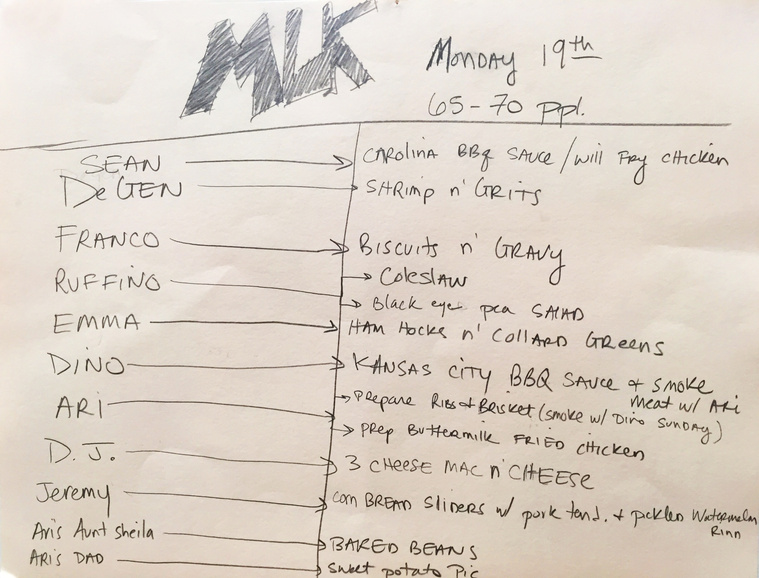 MLK
Monday 19th
65-70 ppl.
SEAN → CAROLINA BBQ SAUCE / Will Fry CHICKEN
DeGEN → SHRIMP n' GRITS
FRANCO → BISCUITS n' GRAVY
RUFFINO → ColeslAW
→ Black eye pea SALAD
EMMA → HAM HOCKS n' COllARD GReens
DINO → KANSAS CITY BBQ SAUCE + SMOKE
meat w/ ARi
ARi → PRePARe RIBS + BRISKET (smoke w/ Dino SUNDAY)
→ PREP BUTTERMILK FRIED CHICKEN
D.J. → 3 CHEESE MAC n' CHEESE
Jeremy → corn BREAD SLIDERS w/ pork tend. + pickled Watermelon
Rind
Ari's Aunt Sheila → BAKED BEANS
ARi's DAD → Sweet potato Pie